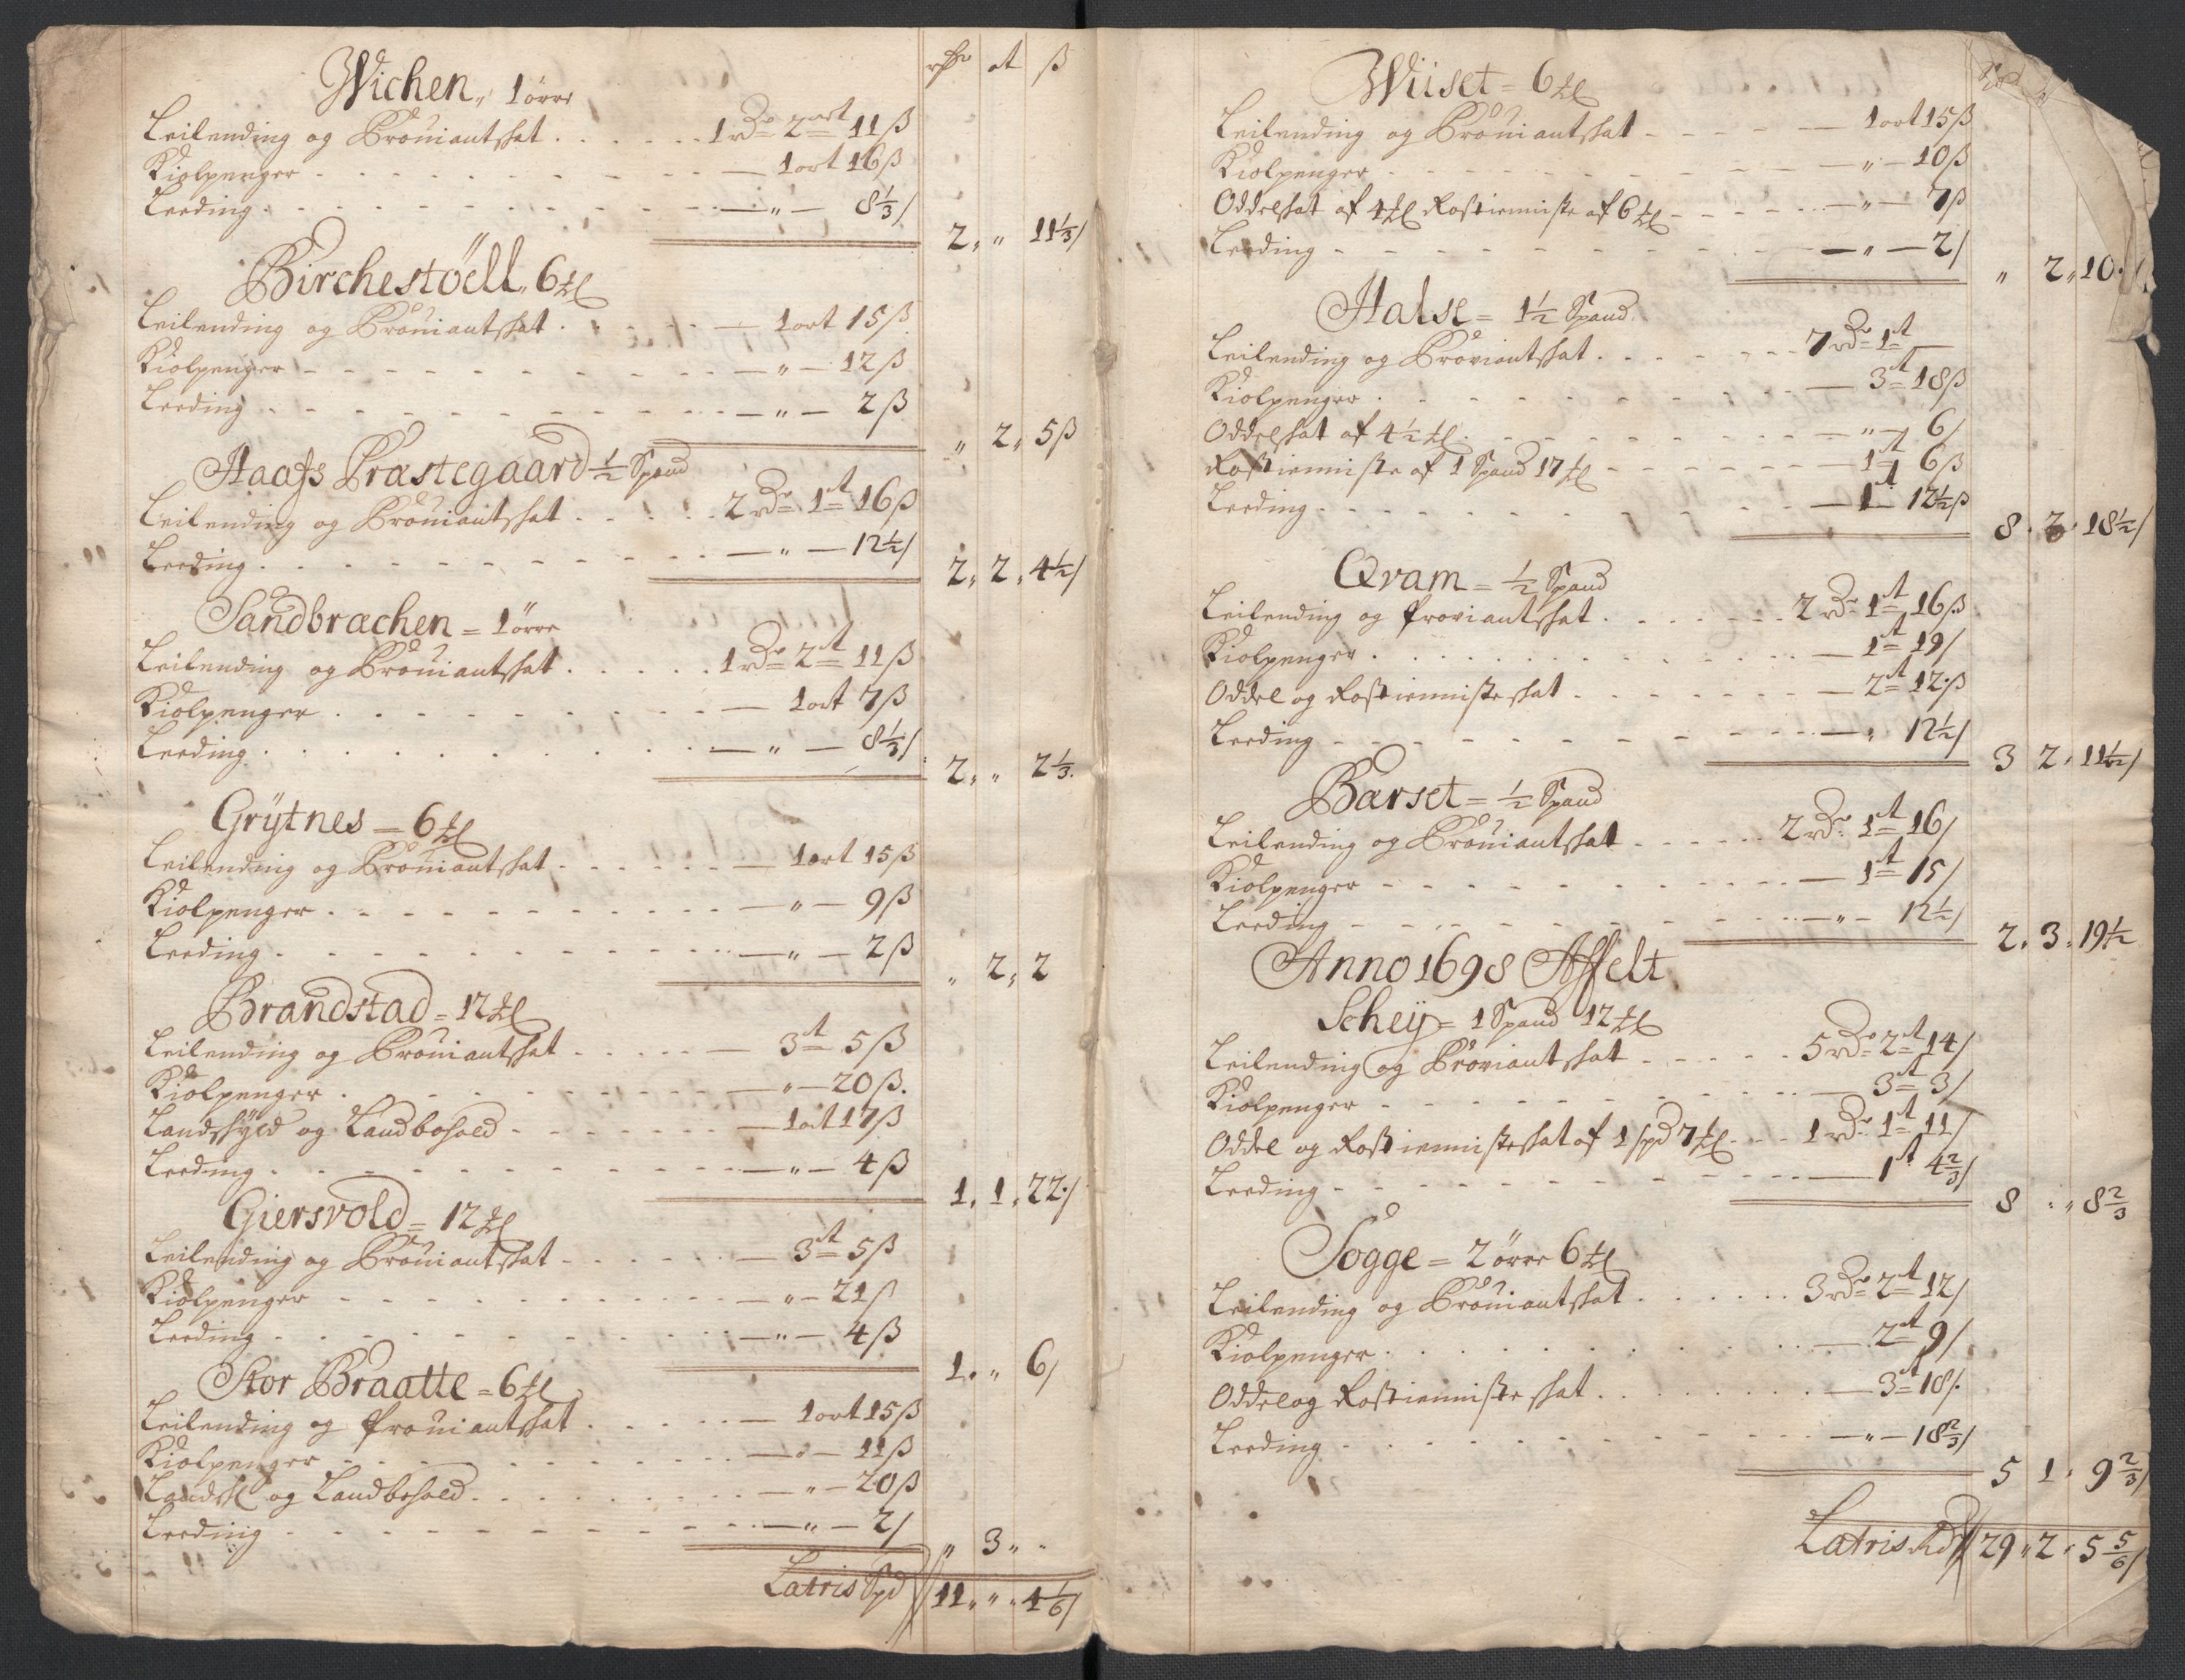 rdr ort ß
Wichen, 1 örre
Leilending og Prouiantskat . . . . . . 1 rdr 2 ort 11 ß
Kiølpenger - - - - - - — 1 ort 16 ß
Leeding - - - - - - — „ — 8⅓ /
2 „ „ 11⅓ /
Birchestöell, 6 ₶
Leilending og Prouiantskat . - - - — 1 ort 15 ß
Kiolpenger - - - - - - — „ — 12 ß
Leeding - - - - - - — „ — 2 ß
„ 2 „ 5 ß
Haafs Præstegaard ½ Spand
Leilending og Prouiantskat . . . . . 2 rdr 1 ort 16 ß
Leeding - - - - - - — „ — 12½ /
2 „ 2 „ 4½ /
Sandbræchen = 1 örre
Leilending og Prouiantskat . . . . . 1 rdr 2 ort 11 ß
Kiolpenger . . . . . . — 1 ort 7 ß
Leeding . . . . . . — „ — 8⅓ /
2 „ „ 2⅓
Grÿtnes = 6 ₶
Leilending og Prouiantskat - - - - — 1 ort 15 ß
Kiolpenger - - - - - - — „ — 9 ß
Leeding - - - - - - — „ — 2 ß
„ 2 „ 2
Brandstad = 12 ₶
Leilending og Prouiantskat - - - - — 3 ort 5 ß
Kiolpenger - - - - - - — „ — 20 ß.
Landskÿld og Landbohold - - - - - — 1 ort 17 ß
Leeding - - - - - - — „ — 4 ß
1 „ 1 „ 22 /
Giersvold = 12 ₶
Leilending og Prouiantskat - - - - — 3 ort 5 ß
Kiolpenger - - - - - - — „ — 21 ß
Leeding - - - - - - — „ — 4 ß
1 „ „ 6 /
Stor Braatte = 6 ₶
Leilending og Prouiantskat . . . . — 1 ort 15 ß
Kiolpenger - - - - - - — „ — 11 ß
Landsk: og Landbohold . . . . . — „ — 20 ß
Leeding - - - - - - — „ — 2 /
„ 3 „ „
Latris Spd 11 „ „ 4⅙ /
Wiiset = 6 ₶
Leilending og Prouiantskat - - - - — 1 ort 15 ß
Kiolpenger - - - - - - — „ — 10 ß
Oddelskat af 4 ₶ Rostienniste af 6 ₶ - - - — „ — 7 ß
Leeding - - - - - - — „ — 2 /
„ 2 „ 10
Halse = 1½ Spand
Leilending og Proviantskat . - - - - 7 rdr 1 ort —
Kiolpenger . - - - - - — 3 ort 18 ß
Oddelskat af 4½ ₶ . - - - - — „ — 6 /
Rostienniste af 1 Spand 17 ₶ - - - - — 1 ort 6 ß
Leeding - - - - - - — 1 ort 12½ ß
8 „ 2 „ 18½ /
Qvam = ½ Spand
Leilending og Proviantskat . - - - - 2 rdr 1 ort 16 ß
Kiolpenger . . . . . . — 1 ort 19 /
Oddel og Rostiennisteskat . . - - - — 2 ort 12 ß
Leeding - - - - - - — „ 12½ /
3 2 „ 11½ /
Barset = ½ Spand
Leilending og Prouiantskat - - - - 2 rdr 1 ort 16 /
Kiolpenger - - - - - - — 1 ort 15 /
Leeding - - - - - - — „ — 12½ /
2 „ 3 „ 19½
Anno 1698 Affelt
Scheÿ = 1 Spand 12 ₶
Leilending og Proviantskat - - - - 5 rdr 2 ort 14 /
Kiolpenger - - - - - - — 3 ort 3 /
Oddel og Rostiennisteskat af 1 spd 7 ₶ - - - 1 rdr 1 ort 11 /
Leeding - - - - - - — 1 ort 4⅔ /
8 „ „ 8⅔
Sogge = 2 örre 6 ₶
Leilending og Prouiantskat . . . . . 3 rdr 2 ort 12 /
Kiolpenger . . . . . . — 2 ort 9 /
Oddel og Rostienniste skat . . . . . — 3 ort 18 /.
Leeding - - - - - - — „ — 18⅔ /
5 1 „ 9⅔ /
Latris Rdr 29 „ 2 „ 5⅚ /